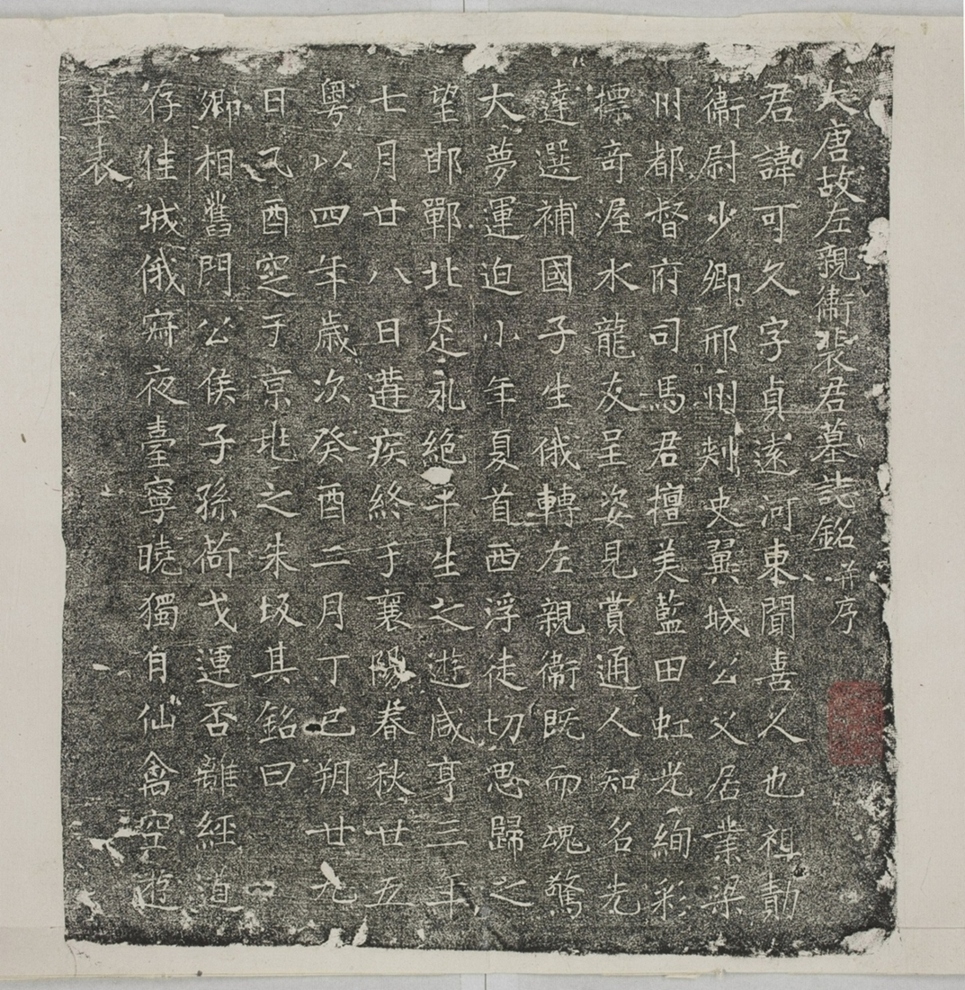 大唐故左親衛裴君墓誌銘并序
君諱可久字貞遠河東聞喜人也祖勣
衛尉少卿邢州刾史翼城公父居業梁
州都督府司馬君擅美藍田虹光絢彩
摽奇渥水龍友呈姿見賞通人知名先
達選補國子生俄轉左親衛既而魂驚
大夢運迫小年夏首西浮徒切思歸之
望邯鄲北走永絶平生之遊咸亨三年
七月廿八日遘疾終于襄陽春秋廿五
粤以四年歳次癸酉二月丁巳朔廿九
日乙酉窆于京兆之朱坂其銘曰
卿相舊門公侯子孫荷戈運否離經道
存隹城俄窅夜臺寧曉獨有仙禽空遊
華表